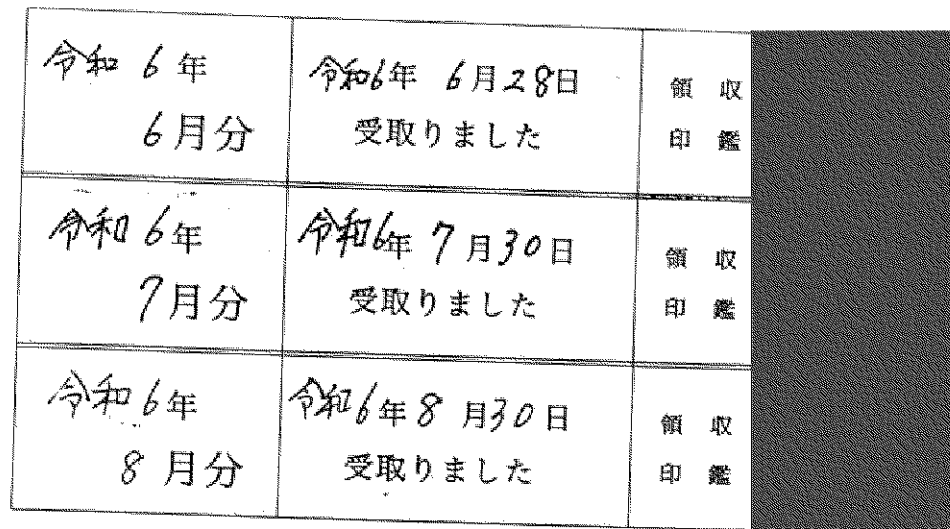 令和 6 年
6 月分
令和6年 6月28日
受取りました
領 収
印 鑑
令和 6 年
7 月分
令和6年 7月30日
受取りました
領 収
印 鑑
令和 6 年
8 月分
令和6年 8月30日
受取りました
領 収
印 鑑